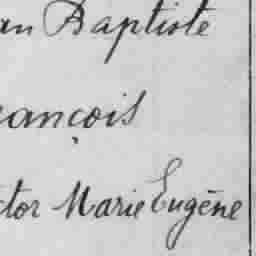 an Baptiste
rançois
ctor Marie Eugène